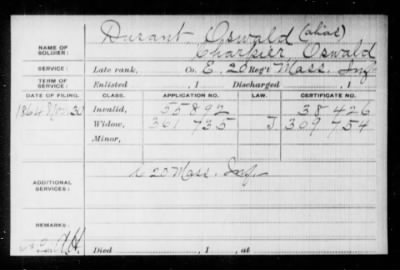 Durant Oswald (alias)
NAME OF SOLDIER: Charpier, Oswald
SERVICE: Late rank, Co. E, 20 Reg't Mass. Inf
TERM OF SERVICE: Enlisted , 1 Discharged , 1
DATE OF FILING. CLASS. APPLICATION NO. LAW. CERTIFICATE NO.
1864 Nov. 30 Invalid, 55892 38426
Widow, 361 735 J. 309 754
Minor,
ADDITIONAL SERVICES: 20 Mass. Inf.
REMARKS:
Died , 1 , at